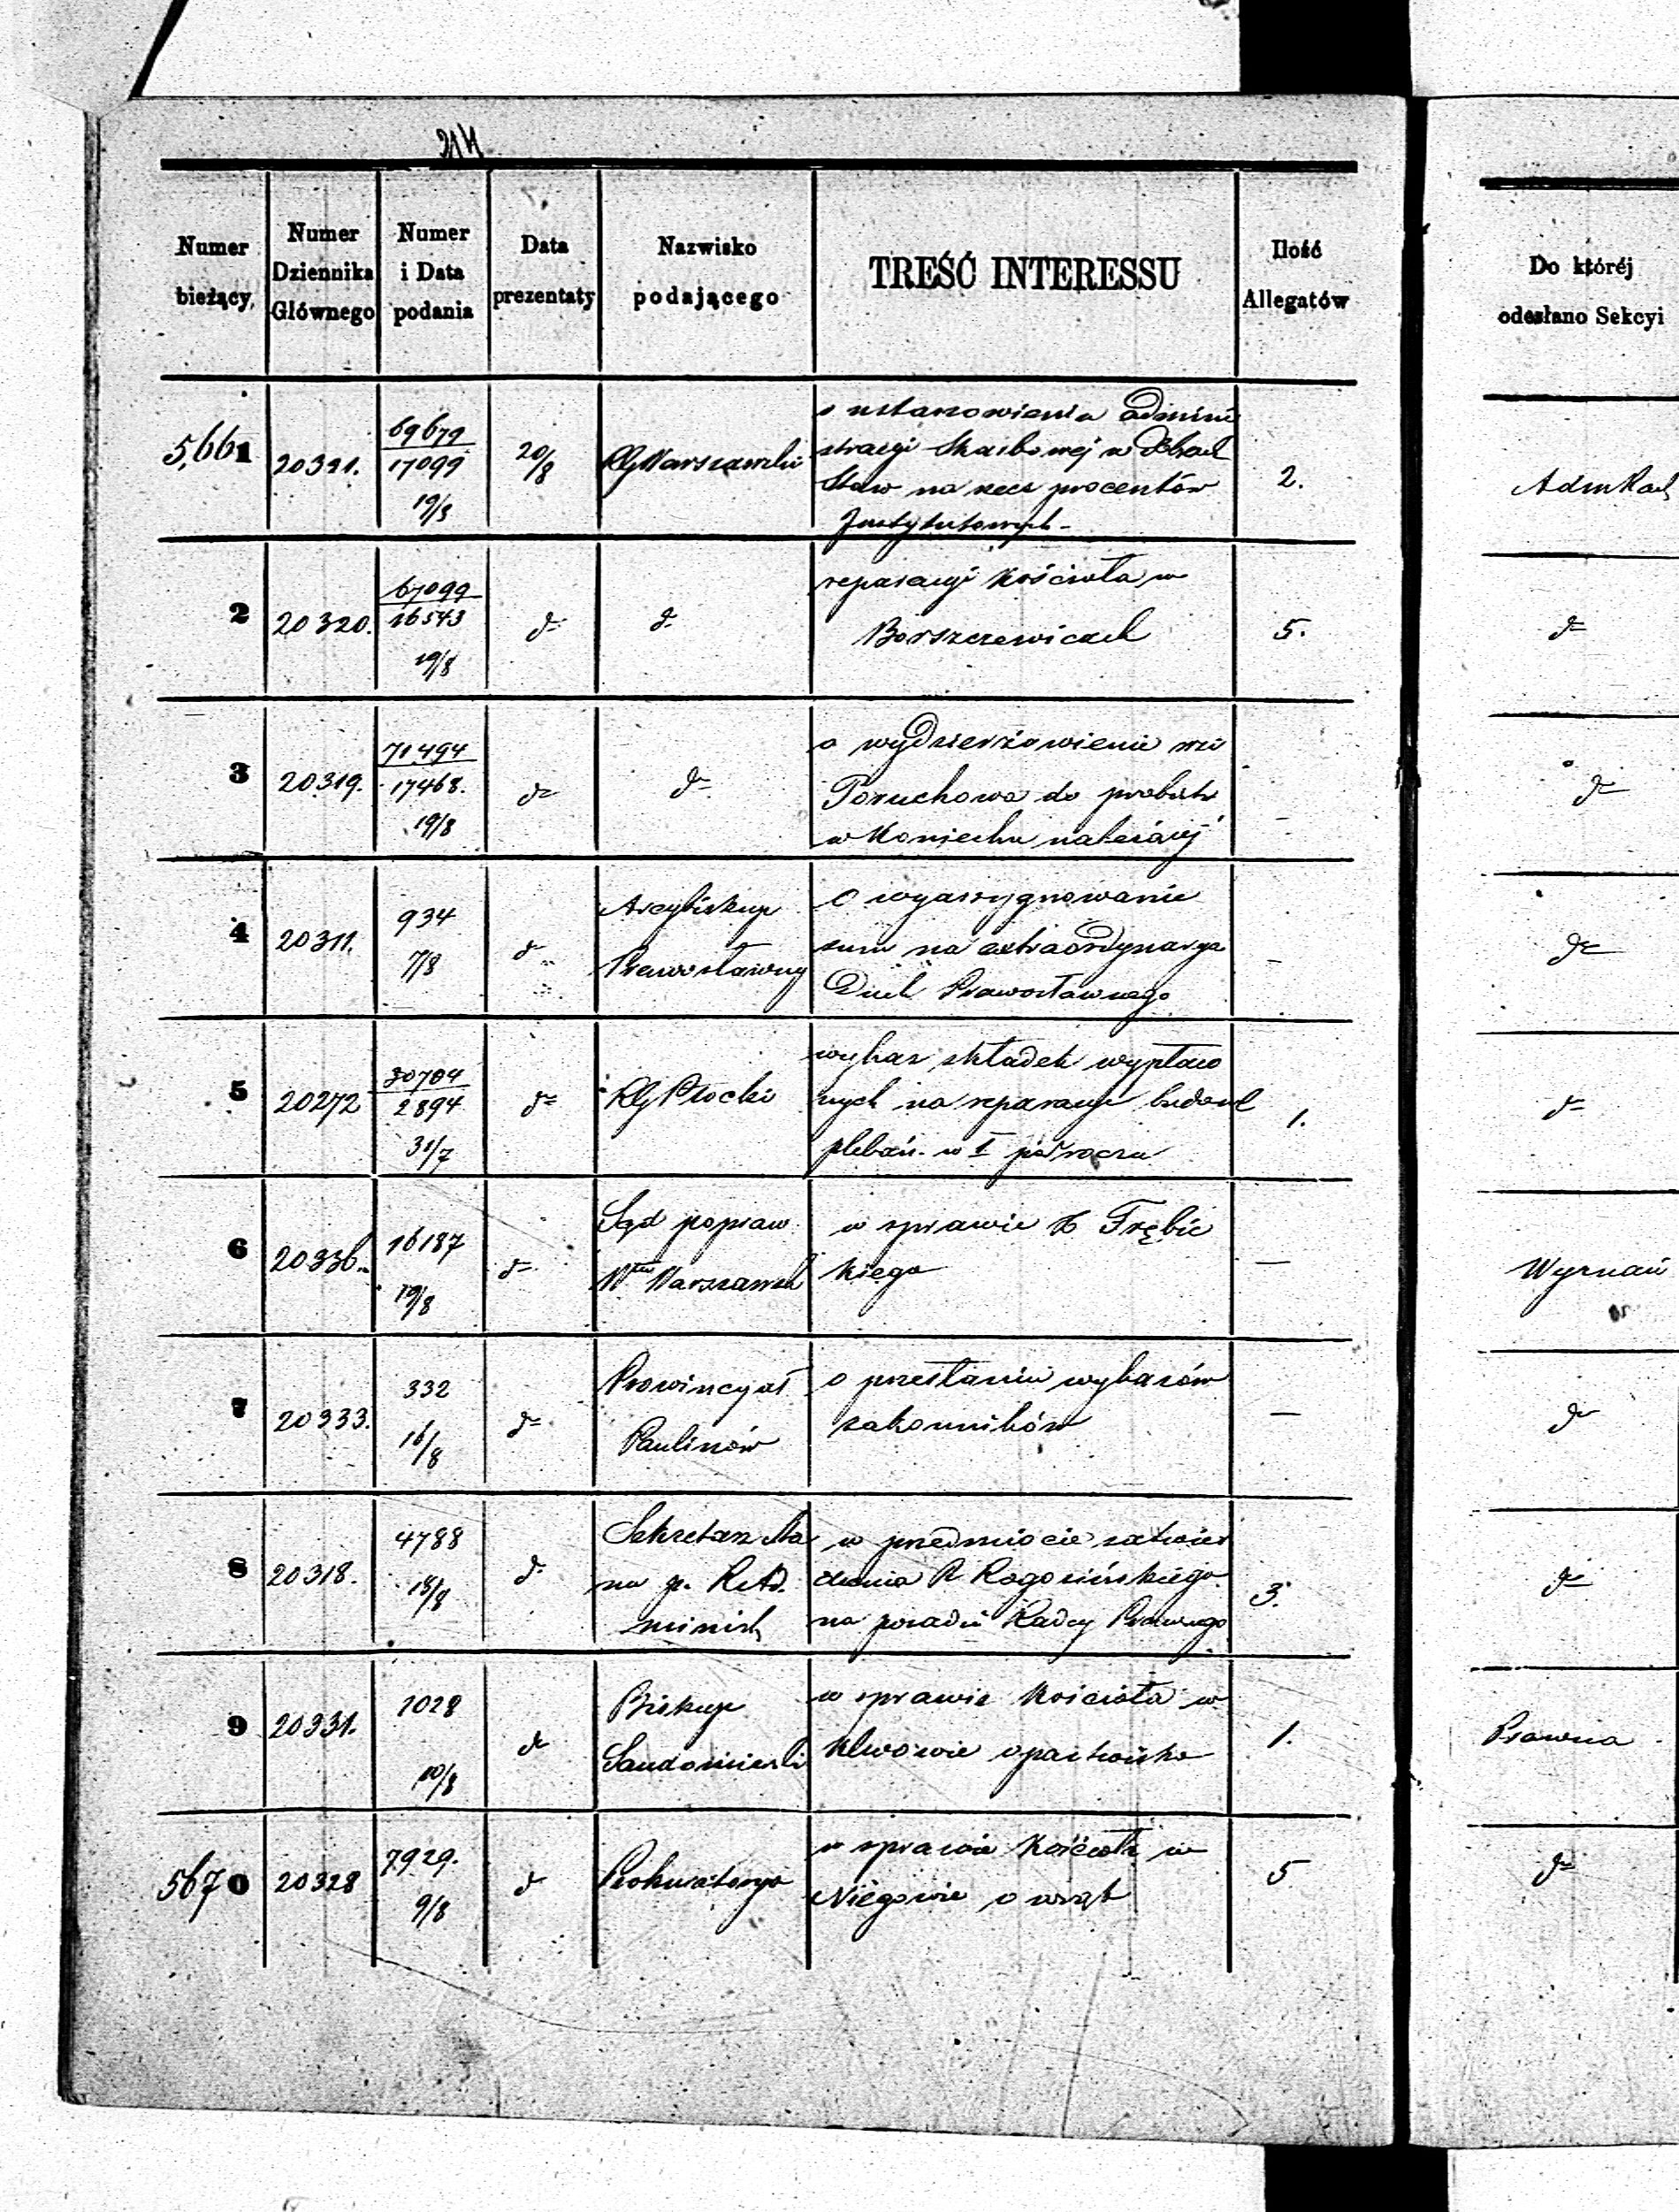 214
Numer bieżący,
Numer Dziennika Głównego
Numer i Data podania
Data prezentaty
Nazwisko podającego
TREŚĆ INTERESSU
Ilość Allegatów
Do któréj odesłano Sekcyi
5,661
20321.
69679
17099
19/8
20/8
RG Warszawski
o ustanowienia admini
stracyi Skarbowej w
na rzecz procentów
Instytutowych -
2.
2
20320.
67099
16543
19/8
d=
d.
reparacyi Kościoła w
Borszczewicach
5.
d=
3
20319.
71.494
17468.
19/8
d=
d=
o wydzierżawienie wsi
Poruchowa do
w należącéj
-
d=
4
20311.
934
7/8
d=
Arcybiskup
Prawosławny
O wyassygnowanie
sum na extraordynarya
Duch Prawosławnego
-
d=
5
20272
30704
2894
31/7
d=
RG Płocki
wykaz składek wypłaco
nych na reparacye budowl
plebań. w I półroczu
1.
d=
6
20336.
16187
19/8
d=
Sąd popraw
Warszawsk
w sprawie X Trębic
kiego
-
Wyznań
7
20333.
332
16/8
d=
Prowincyał
Paulinów
o przesłaniu wykazów
zakonników
-
d=
8
20318.
4788
18/8
d=
Sekretarz Sta
nu
w przedmiocie zatwier
dzenia P. Rogozińskiego
na posadzie Radcy Prawnego
3.
d=
9
20331.
1028
10/8
d=
Biskup
Sandomierski
w sprawie Kościoła w
Klwowie
1.
Prawna
5670
20328
7929.
9/8
d=
Prokuratorya
w sprawie Kościoła w
Niegowie o
5
d=